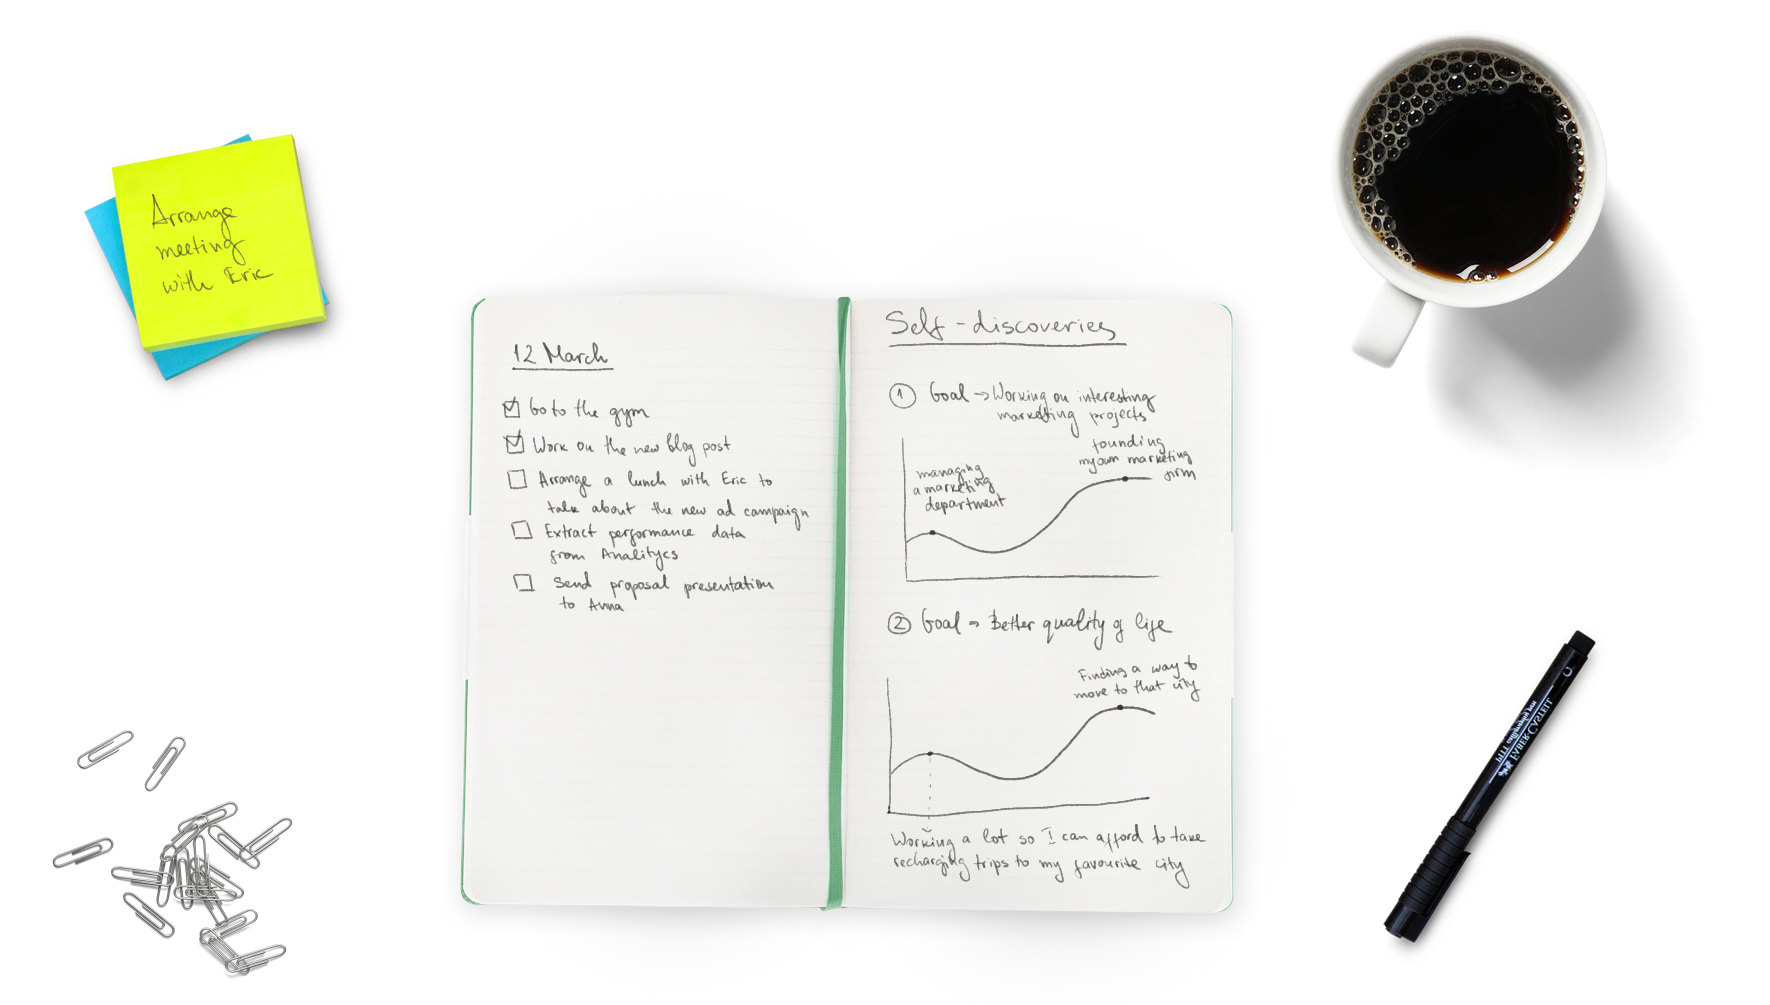 Arrange
meeting
with Eric
12 March
Go to the gym
Work on the new blog post
Arrange a lunch with Eric to
talk about the new ad campaign
Extract performance data
from Analitycs
Send proposal presentation
to Anna
Self-discoveries
1 Goal → Working on interesting
marketing projects
managing
a marketing
department
founding
my own marketing
firm
2 Goal → Better quality of life
Finding a way to
move to that city
Working a lot so I can afford to take
recharging trips to my favourite city
FABER-CASTELL